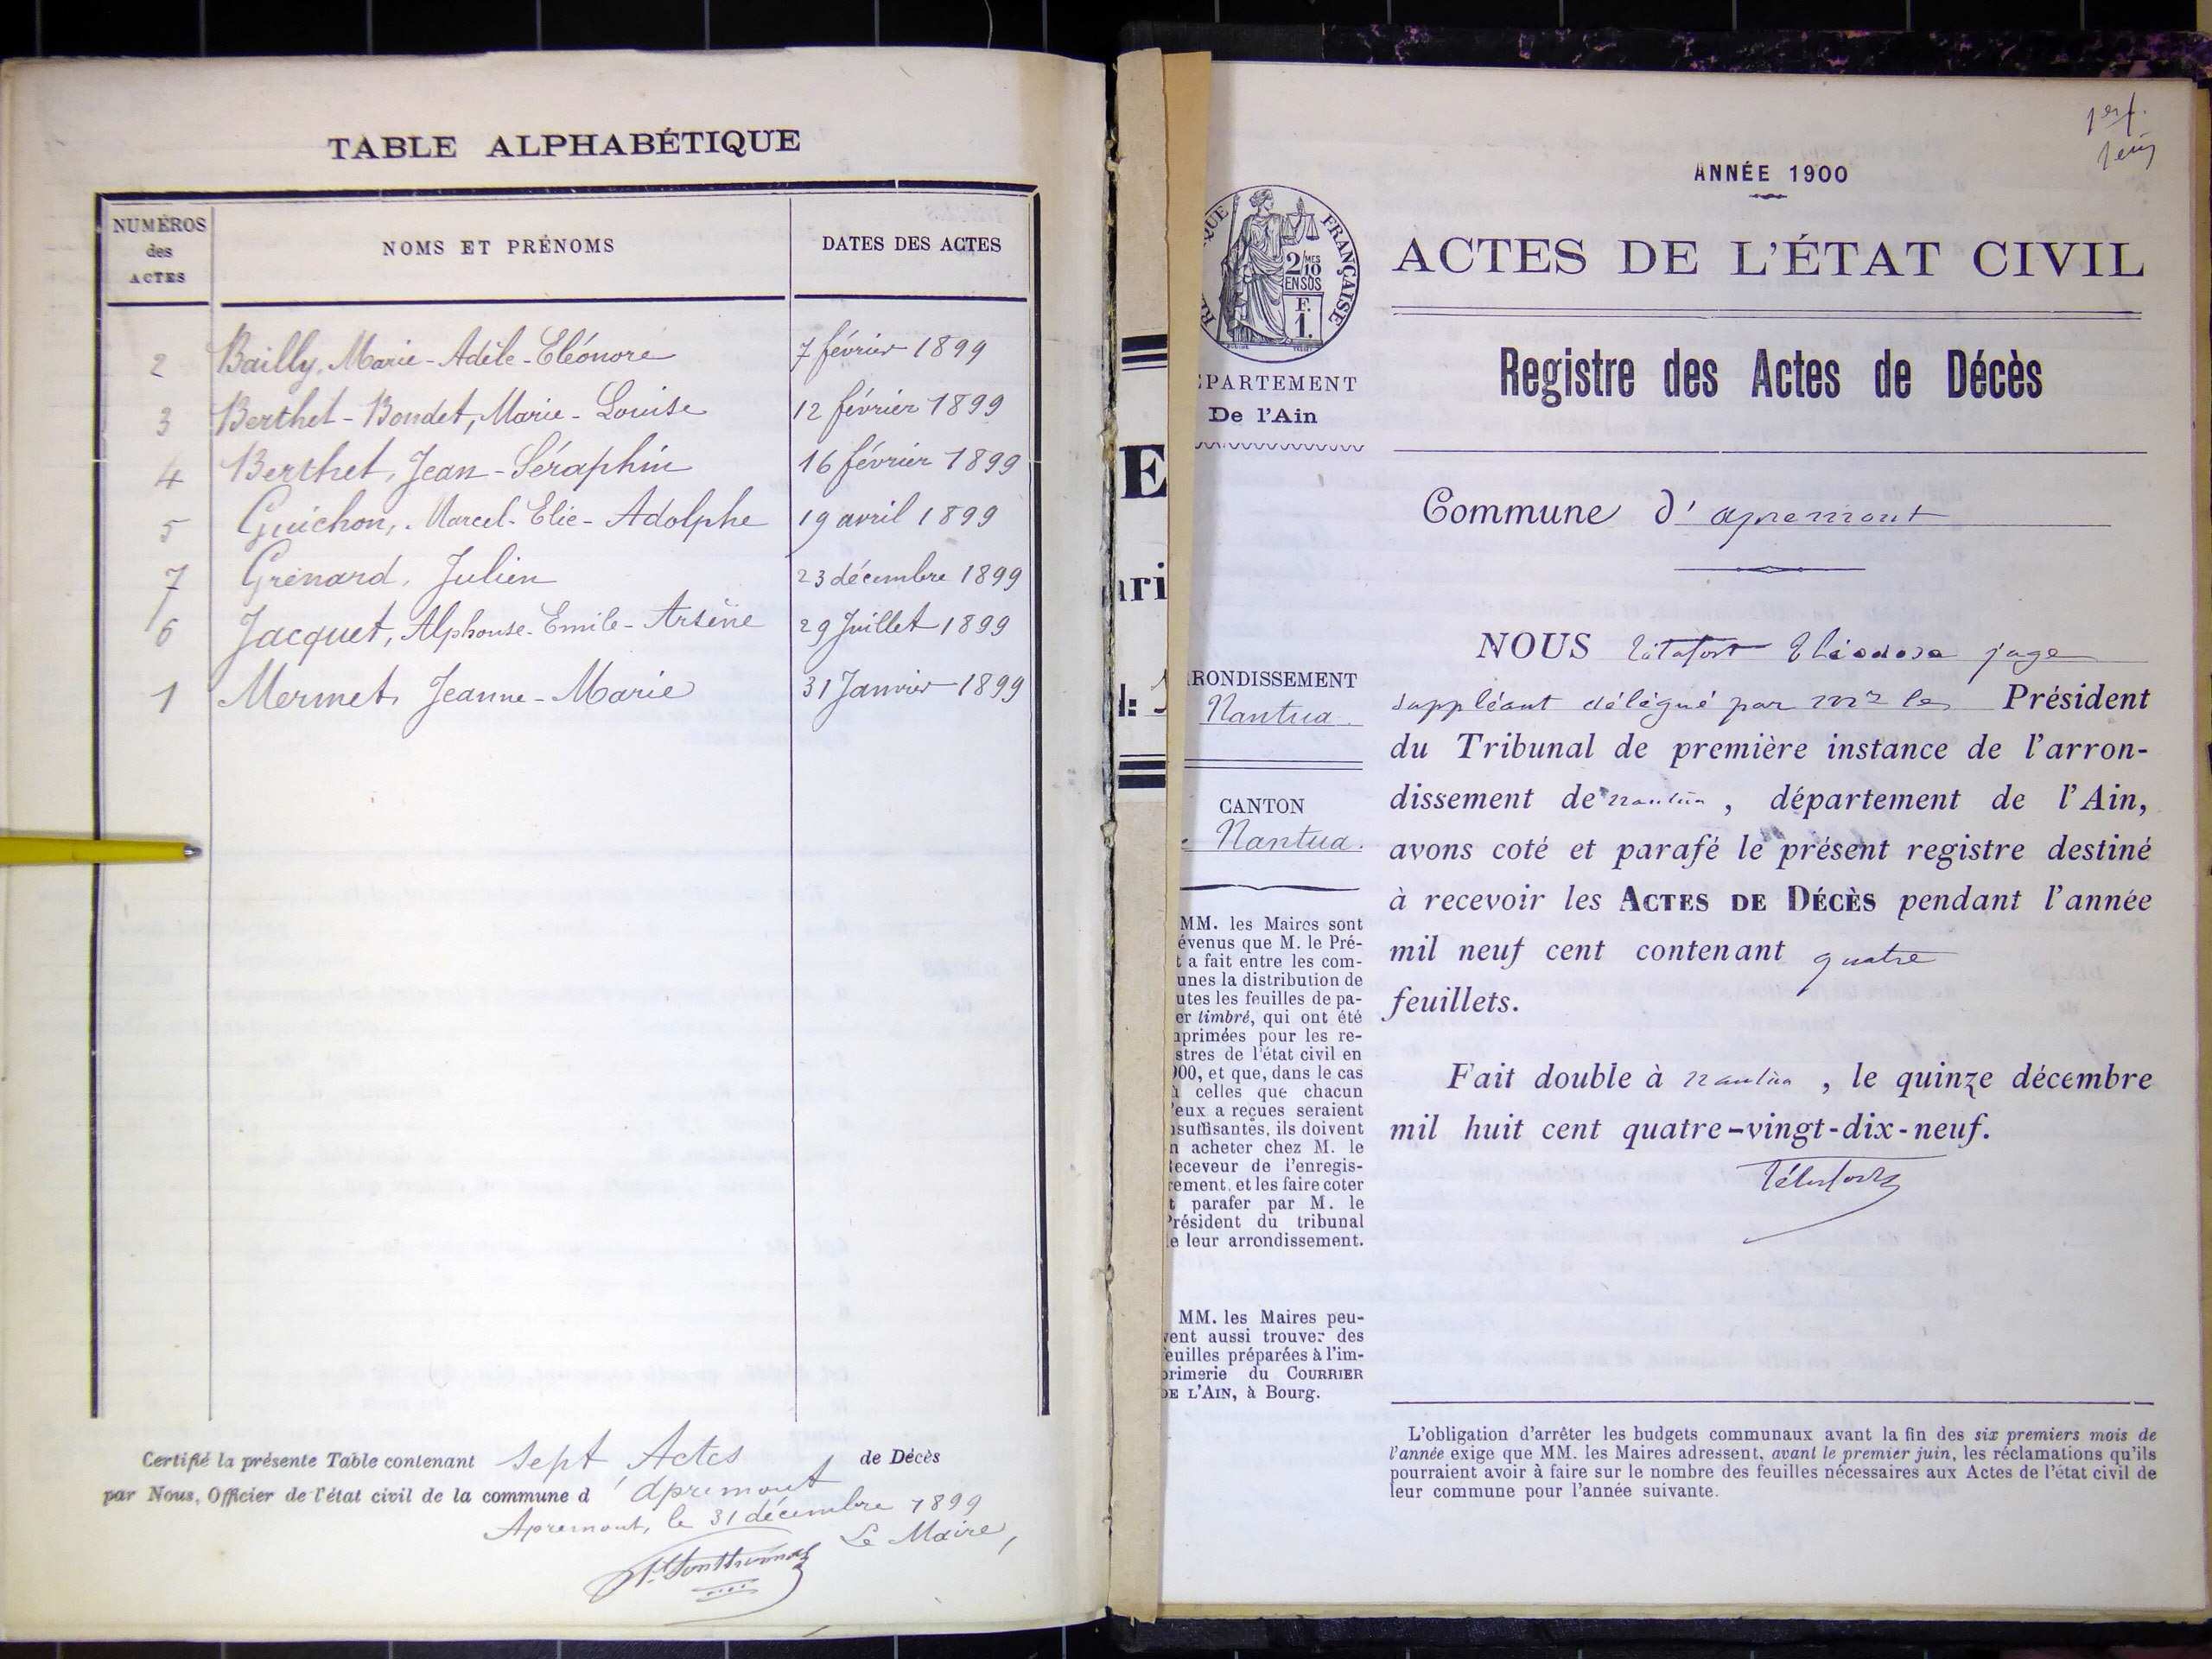 TABLE ALPHABÉTIQUE
NUMÉROS
des
ACTES
NOMS ET PRÉNOMS
DATES DES ACTES
2 Bailly, Marie-Adèle-Eléonore 7 février 1899
3 Berthet-Bondet, Marie-Louise 12 février 1899
4 Berthet, Jean-Séraphin 16 février 1899
5 Guichon, Marcel-Elie-Adolphe 19 avril 1899
7 Grenard, Julien 23 décembre 1899
6 Jacquet, Alphonse-Emile-Arsène 29 Juillet 1899
1 Mermet, Jeanne-Marie 31 Janvier 1899
Certifié la présente Table contenant sept Actes de Décès
par Nous, Officier de l'état civil de la commune d'Apremont
Apremont, le 31 décembre 1899
Le Maire,
E
ari
RÉPUBLIQUE FRANÇAISE
2/10
MES
EN SUS
F.
1.
EPARTEMENT
De l'Ain
RONDISSEMENT
Nantua
CANTON
Nantua.
MM. les Maires sont
évenus que M. le Pré-
t a fait entre les com-
unes la distribution de
utes les feuilles de pa-
er timbré, qui ont été
primées pour les re-
stres de l'état civil en
00, et que, dans le cas
ù celles que chacun
'eux a reçues seraient
suffisantes, ils doivent
n acheter chez M. le
eceveur de l'enregis-
rement, et les faire coter
t parafer par M. le
Président du tribunal
e leur arrondissement.
MM. les Maires peu-
vent aussi trouver des
euilles préparées à l'im-
primerie du COURRIER
DE L'AIN, à Bourg.
1er f.
ANNÉE 1900
ACTES DE L'ÉTAT CIVIL
Registre des Actes de Décès
Commune d'apremont
NOUS Théodose juge
suppléant délégué par Mr le Président
du Tribunal de première instance de l'arron-
dissement de nantua, département de l'Ain,
avons coté et parafé le présent registre destiné
à recevoir les ACTES DE DÉCÈS pendant l'année
mil neuf cent contenant quatre
feuillets.
Fait double à nantua, le quinze décembre
mil huit cent quatre-vingt-dix-neuf.
L'obligation d'arrêter les budgets communaux avant la fin des six premiers mois de
l'année exige que MM. les Maires adressent, avant le premier juin, les réclamations qu'ils
pourraient avoir à faire sur le nombre des feuilles nécessaires aux Actes de l'état civil de
leur commune pour l'année suivante.